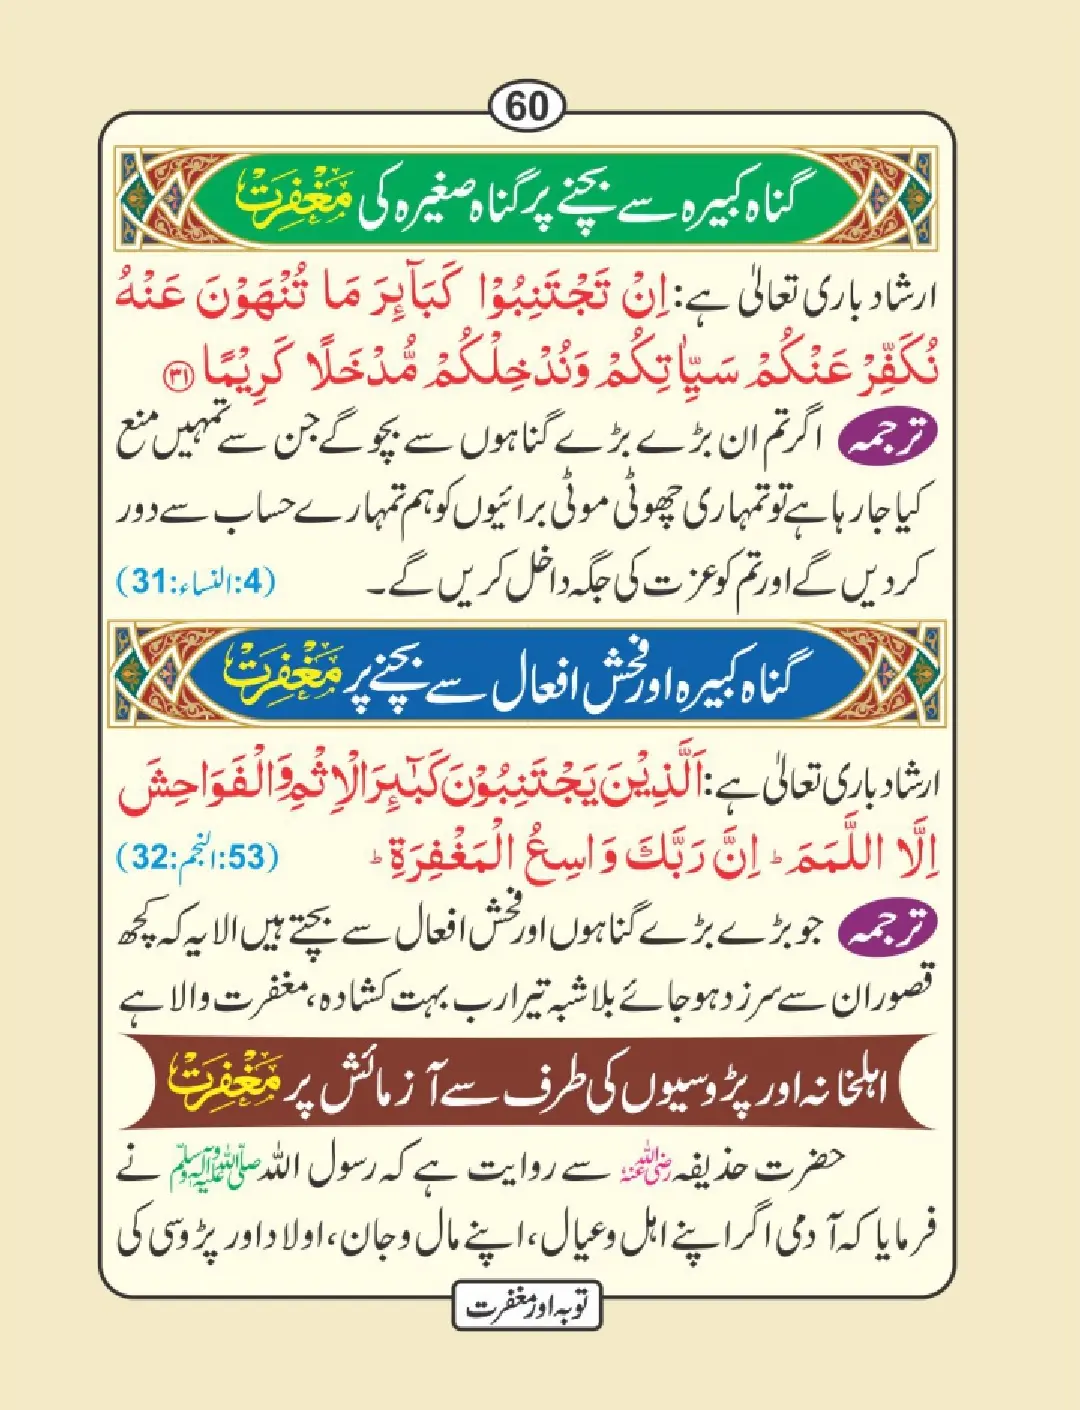 60
گناہ کبیرہ سے بچنے پر گناہ صغیرہ کی مغفرت
ارشاد باری تعالیٰ ہے: اِنْ تَجْتَنِبُوْا كَبَآىِٕرَ مَا تُنْهَوْنَ عَنْهُ
نُكَفِّرْ عَنْكُمْ سَیِّاٰتِكُمْ وَنُدْخِلْكُمْ مُّدْخَلًا كَرِیْمًا ۳۱
ترجمہ اگر تم ان بڑے بڑے گناہوں سے بچو گے جن سے تمہیں منع
کیا جا رہا ہے تو تمہاری چھوٹی موٹی برائیوں کو ہم تمہارے حساب سے دور
کر دیں گے اور تم کو عزت کی جگہ داخل کریں گے۔ (4:النساء:31)
گناہ کبیرہ اور فحش افعال سے بچنے پر مغفرت
ارشاد باری تعالیٰ ہے: اَلَّذِیْنَ یَجْتَنِبُوْنَ كَبٰٓىِٕرَ الْاِثْمِ وَالْفَوَاحِشَ
اِلَّا اللَّمَمَ ؕ اِنَّ رَبَّكَ وَاسِعُ الْمَغْفِرَةِ ؕ (53:النجم:32)
ترجمہ جو بڑے بڑے گناہوں اور فحش افعال سے بچتے ہیں الا یہ کہ کچھ
قصور ان سے سرزد ہو جائے بلاشبہ تیرا رب بہت کشادہ، مغفرت والا ہے
اہلخانہ اور پڑوسیوں کی طرف سے آزمائش پر مغفرت
حضرت حذیفہ رضی اللہ عنہ سے روایت ہے کہ رسول اللہ صلی اللہ علیہ وآلہ وسلم نے
فرمایا کہ آدمی اگر اپنے اہل و عیال، اپنے مال و جان، اولاد اور پڑوسی کی
توبہ اور مغفرت